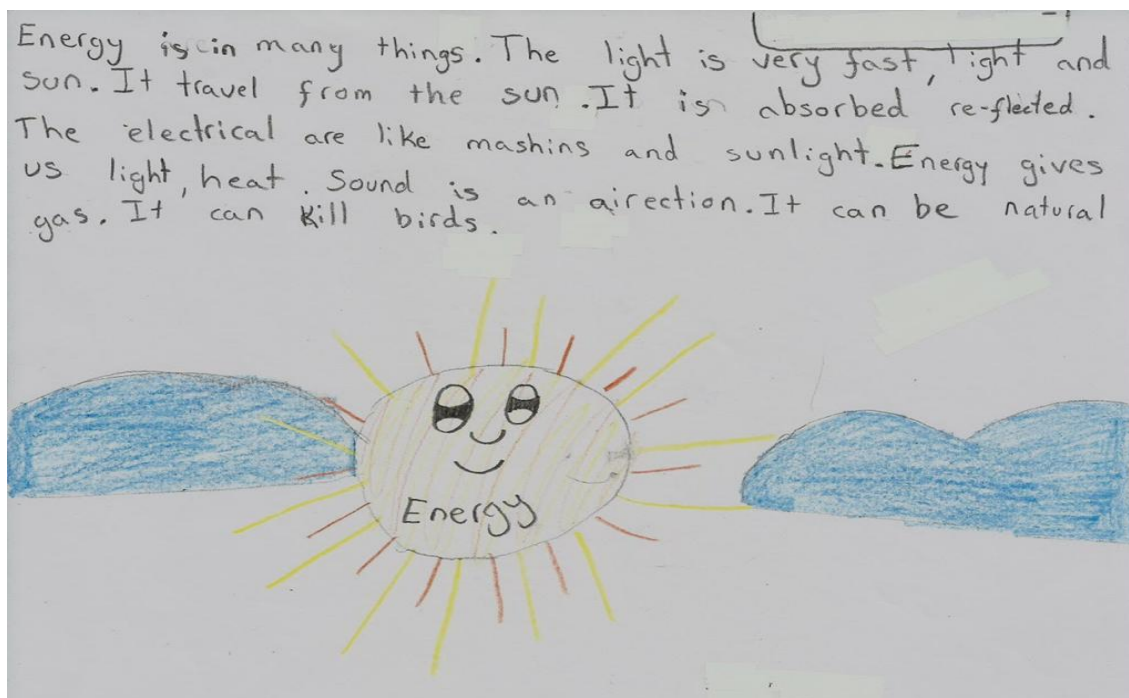 Energy is in many things. The light is very fast, light and
sun. It travel from the sun. It is absorbed re-flected.
The electrical are like mashins and sunlight. Energy gives
us light, heat. Sound is an airection. It can be natural
gas. It can kill birds.
Energy